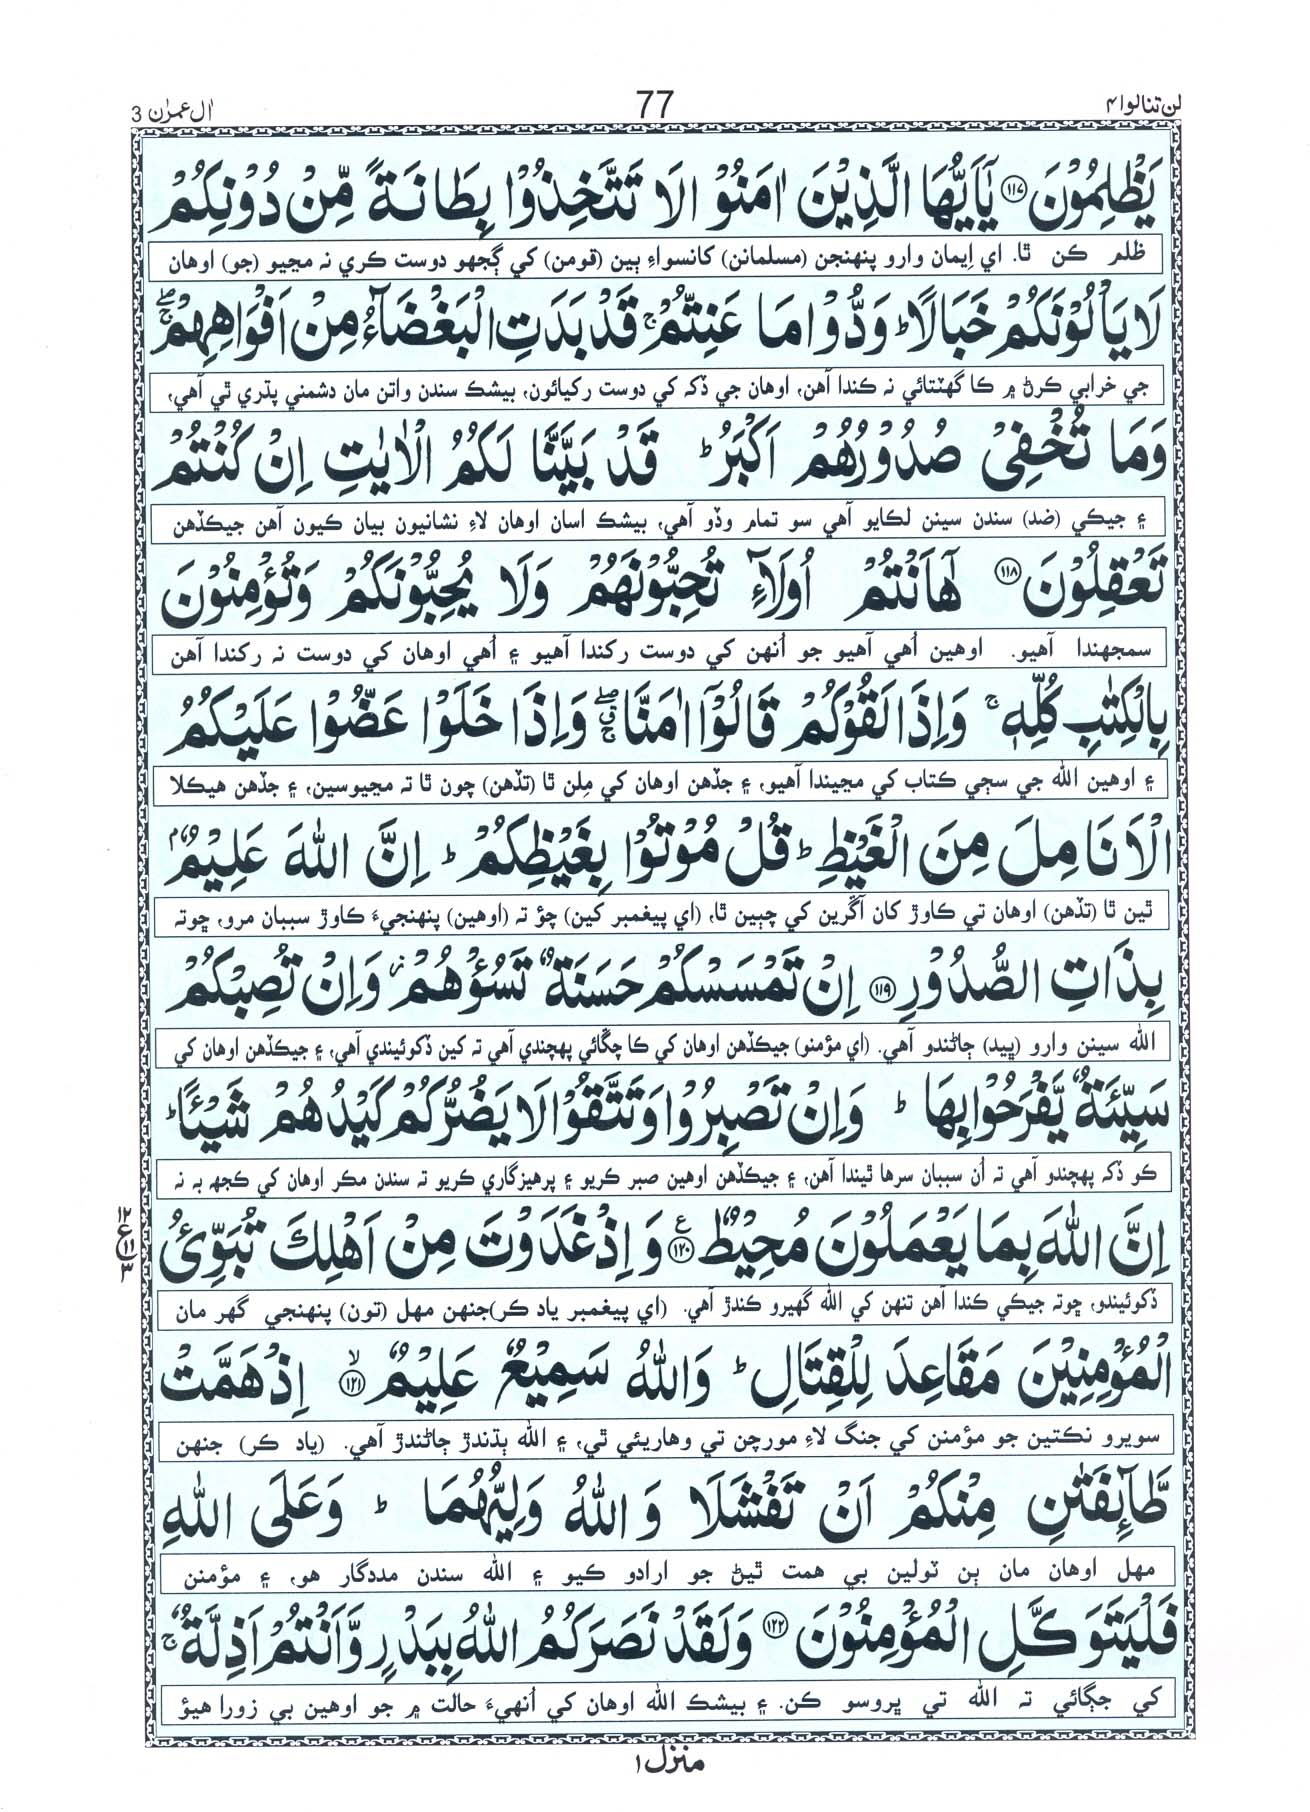 لن تنالوا ۴ 77 اٰل عمرٰن 3
يَظْلِمُوْنَ ﴿۱۱۷﴾ يٰۤاَيُّهَا الَّذِيْنَ اٰمَنُوْا لَا تَتَّخِذُوْا بِطَانَةً مِّنْ دُوْنِكُمْ
ظلم ڪن ٿا. اي اِيمان وارو پنهنجن (مسلمانن) کانسواءِ ٻين (قومن) کي ڳجهو دوست ڪري نہ مڃيو (جو) اوهان
لَا يَاْلُوْنَكُمْ خَبَالًا ؕ وَدُّوْا مَا عَنِتُّمْ ۚ قَدْ بَدَتِ الْبَغْضَآءُ مِنْ اَفْوَاهِهِمْ ۖۚ
جي خرابي ڪرڻ ۾ ڪا گهٽتائي نہ ڪندا آهن، اوهان جي ڏک کي دوست رکيائون، بيشڪ سندن واتن مان دشمني پڌري ٿي آهي،
وَمَا تُخْفِيْ صُدُوْرُهُمْ اَكْبَرُ ؕ قَدْ بَيَّنَّا لَكُمُ الْاٰيٰتِ اِنْ كُنْتُمْ
۽ جيڪي (ضد) سندن سينن لڪايو آهي سو تمام وڏو آهي، بيشڪ اسان اوهان لاءِ نشانيون بيان ڪيون آهن جيڪڏهن
تَعْقِلُوْنَ ﴿۱۱۸﴾ هٰۤاَنْتُمْ اُولَآءِ تُحِبُّوْنَهُمْ وَلَا يُحِبُّوْنَكُمْ وَتُؤْمِنُوْنَ
سمجهندا آهيو. اوهين اُهي آهيو جو اُنهن کي دوست رکندا آهيو ۽ اُهي اوهان کي دوست نہ رکندا آهن
بِالْكِتٰبِ كُلِّهٖ ۚ وَاِذَا لَقُوْكُمْ قَالُوْۤا اٰمَنَّا ۖۚ وَاِذَا خَلَوْا عَضُّوْا عَلَيْكُمُ
۽ اوهين الله جي سڄي ڪتاب کي مڃيندا آهيو، ۽ جڏهن اوهان کي مِلن ٿا (تڏهن) چون ٿا تہ مڃيوسين، ۽ جڏهن هيڪلا
الْاَنَامِلَ مِنَ الْغَيْظِ ؕ قُلْ مُوْتُوْا بِغَيْظِكُمْ ؕ اِنَّ اللّٰهَ عَلِيْمٌۢ
ٿين ٿا (تڏهن) اوهان تي ڪاوڙ کان آڱرين کي چٻين ٿا، (اي پيغمبر کين) چؤ تہ (اوهين) پنهنجيءَ ڪاوڙ سببان مرو، ڇوتہ
بِذَاتِ الصُّدُوْرِ ﴿۱۱۹﴾ اِنْ تَمْسَسْكُمْ حَسَنَةٌ تَسُؤْهُمْ ؗ وَاِنْ تُصِبْكُمْ
الله سينن وارو (ڀيد) ڄاڻندو آهي. (اي مؤمنو) جيڪڏهن اوهان کي ڪا چڱائي پهچندي آهي تہ کين ڏکوئيندي آهي، ۽ جيڪڏهن اوهان کي
سَيِّئَةٌ يَّفْرَحُوْا بِهَا ؕ وَاِنْ تَصْبِرُوْا وَتَتَّقُوْا لَا يَضُرُّكُمْ كَيْدُهُمْ شَيْـًٔا ؕ
ڪو ڏک پهچندو آهي تہ اُن سببان سرها ٿيندا آهن، ۽ جيڪڏهن اوهين صبر ڪريو ۽ پرهيزگاري ڪريو تہ سندن مڪر اوهان کي ڪجهہ بہ نہ
اِنَّ اللّٰهَ بِمَا يَعْمَلُوْنَ مُحِيْطٌ ﴿۱۲۰﴾ ع وَاِذْ غَدَوْتَ مِنْ اَهْلِكَ تُبَوِّئُ ۱۲ ع ۱۱ ۳
ڏکوئيندو، ڇوتہ جيڪي ڪندا آهن تنهن کي الله گهيرو ڪندڙ آهي. (اي پيغمبر ياد ڪر)جنهن مهل (تون) پنهنجي گهر مان
الْمُؤْمِنِيْنَ مَقَاعِدَ لِلْقِتَالِ ؕ وَاللّٰهُ سَمِيْعٌ عَلِيْمٌ ۙ﴿۱۲۱﴾ اِذْ هَمَّتْ
سويرو نڪتين جو مؤمنن کي جنگ لاءِ مورچن تي وهاريئي ٿي، ۽ الله ٻڌندڙ ڄاڻندڙ آهي. (ياد ڪر) جنهن
طَّآئِفَتٰنِ مِنْكُمْ اَنْ تَفْشَلَا وَاللّٰهُ وَلِيُّهُمَا ؕ وَعَلَى اللّٰهِ
مهل اوهان مان ٻن ٽولين بي همت ٿيڻ جو ارادو ڪيو ۽ الله سندن مددگار هو، ۽ مؤمنن
فَلْيَتَوَكَّلِ الْمُؤْمِنُوْنَ ﴿۱۲۲﴾ وَلَقَدْ نَصَرَكُمُ اللّٰهُ بِبَدْرٍ وَّاَنْتُمْ اَذِلَّةٌ ۚ
کي جڳائي تہ الله تي ڀروسو ڪن. ۽ بيشڪ الله اوهان کي اُنهيءَ حالت ۾ جو اوهين بي زورا هيؤ
منزل ۱